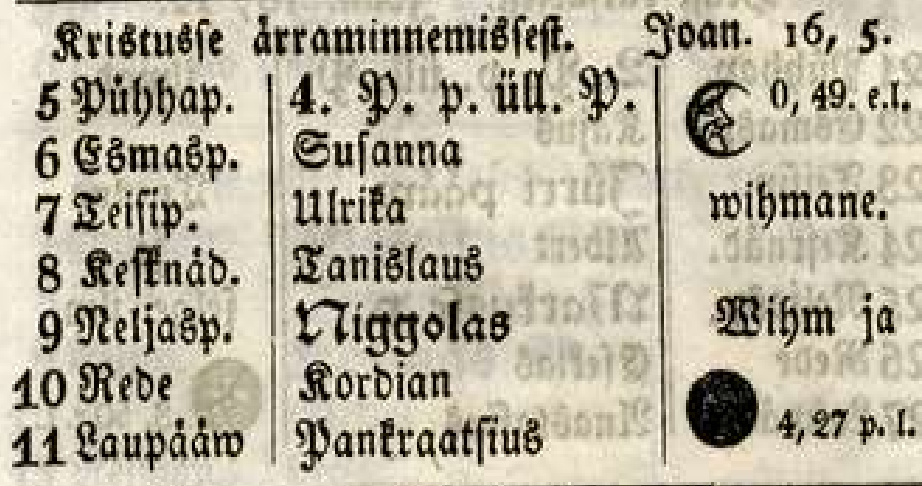 Kristusse ärraminnemissest. Joan. 16, 5.
5 Pühhap. 4. P. p. üll. P. 0, 49. e.l.
6 Esmasp. Susanna
7 Teisip. Ulrika wihmane.
8 Kesknäd. Tanislaus
9 Neljasp. Niggolas Wihm ja
10 Rede Kordian
11 Laupääw Pankraatsius 4, 27 p. l.